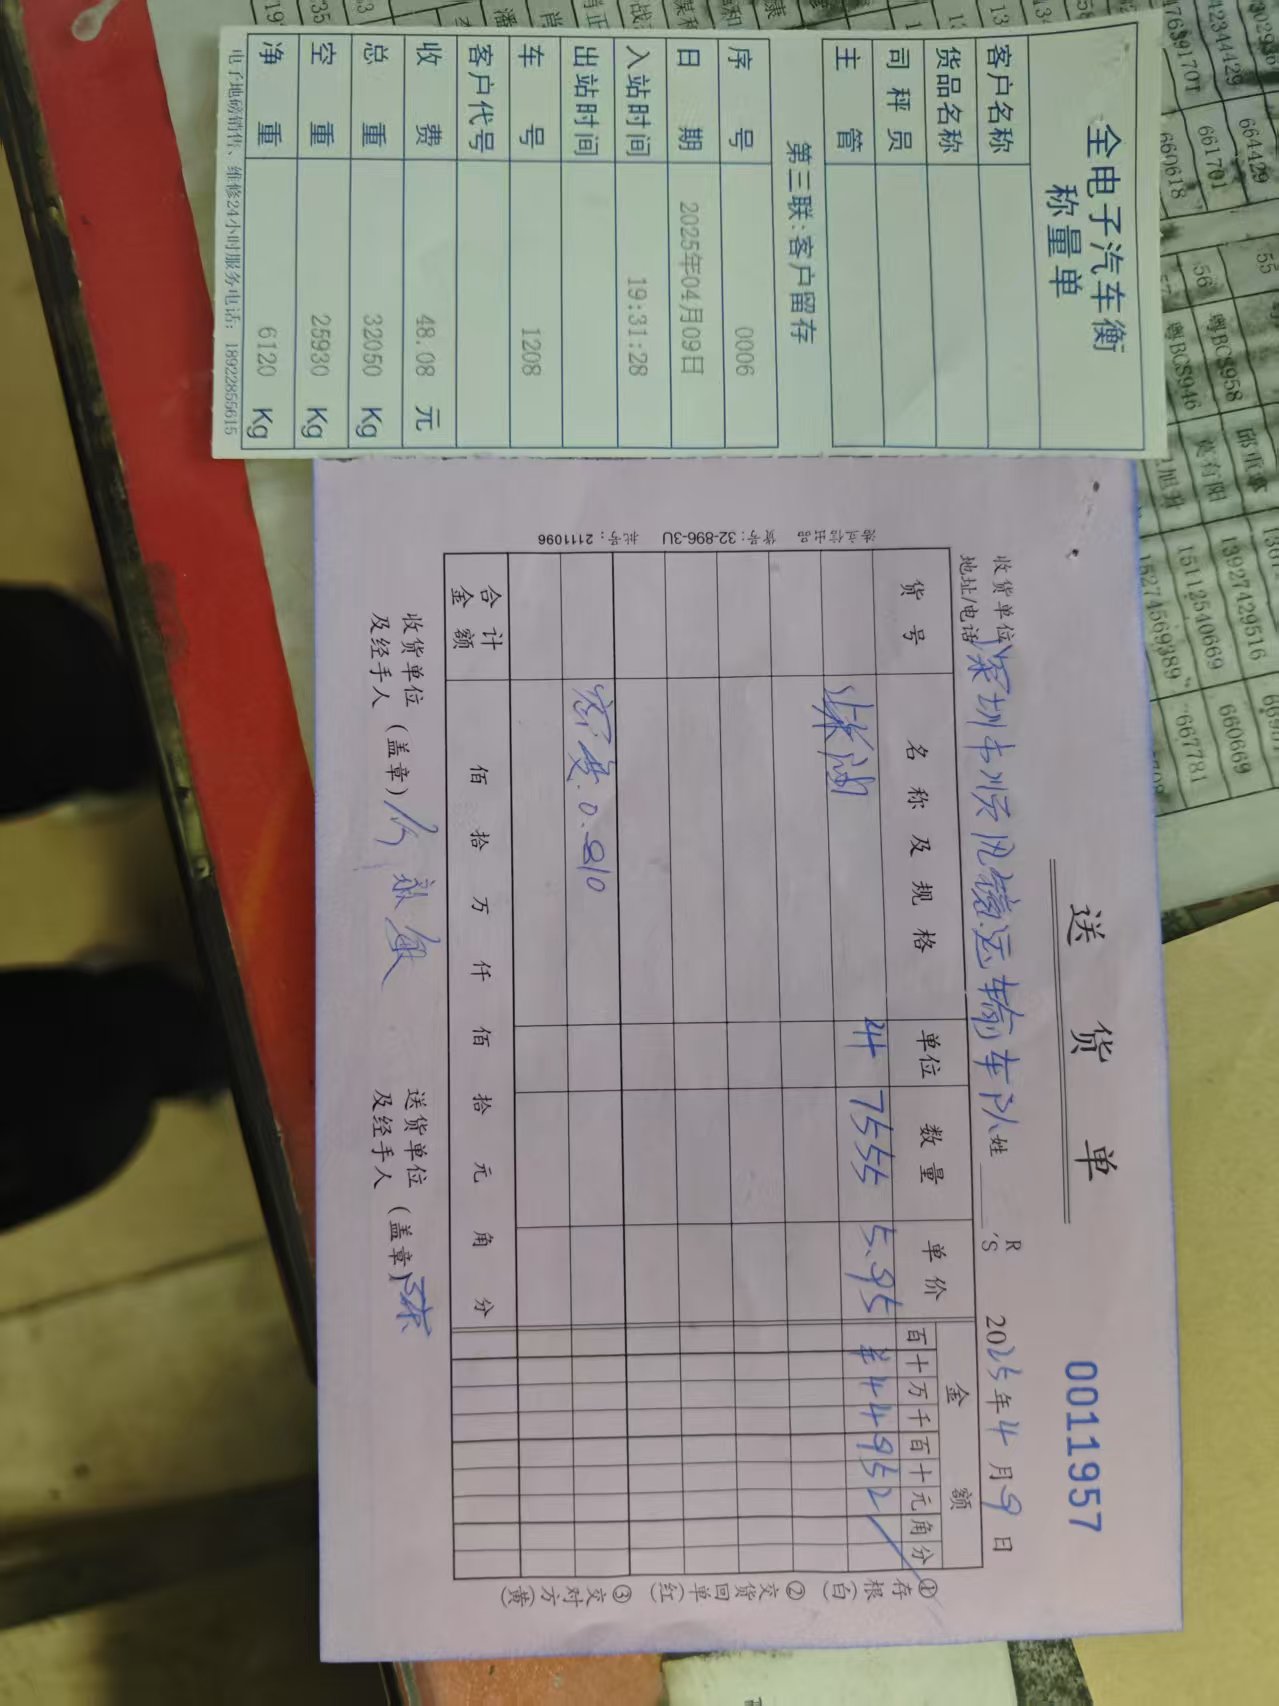 全电子汽车衡
称量单
客户名称
货品名称
司秤员
主管
第三联:客户留存
序号 0006
日期 2025年04月09日
入站时间 19:31:28
出站时间
车号 1208
客户代号
收费 48.08 元
总重 32050 Kg
空重 25930 Kg
净重 6120 Kg
电子地磅销售、维修24小时服务电话: 18922855615
送货单
0011957
收货单位
地址/电话 深圳市顺风镜运输车队 姓 R 'S 2025年4月9日
货号 名称及规格 单位 数量 单价 金额
百十万千百十元角分
柴油 升 7555 5.95 ¥44952
密度:0.810
合计金额 佰拾万仟佰拾元角分
收货单位及经手人(盖章)
送货单位及经手人(盖章)
①存根(白) ②交货回单(红) ③交对方(黄)
货号:32-896-3U 批号:2111096
664429
42344429
661701
176391701
660618
55
56
粤BCS958
粤BCS946
莫有阳
13927429516
15112540669
15274569389
660669
667781